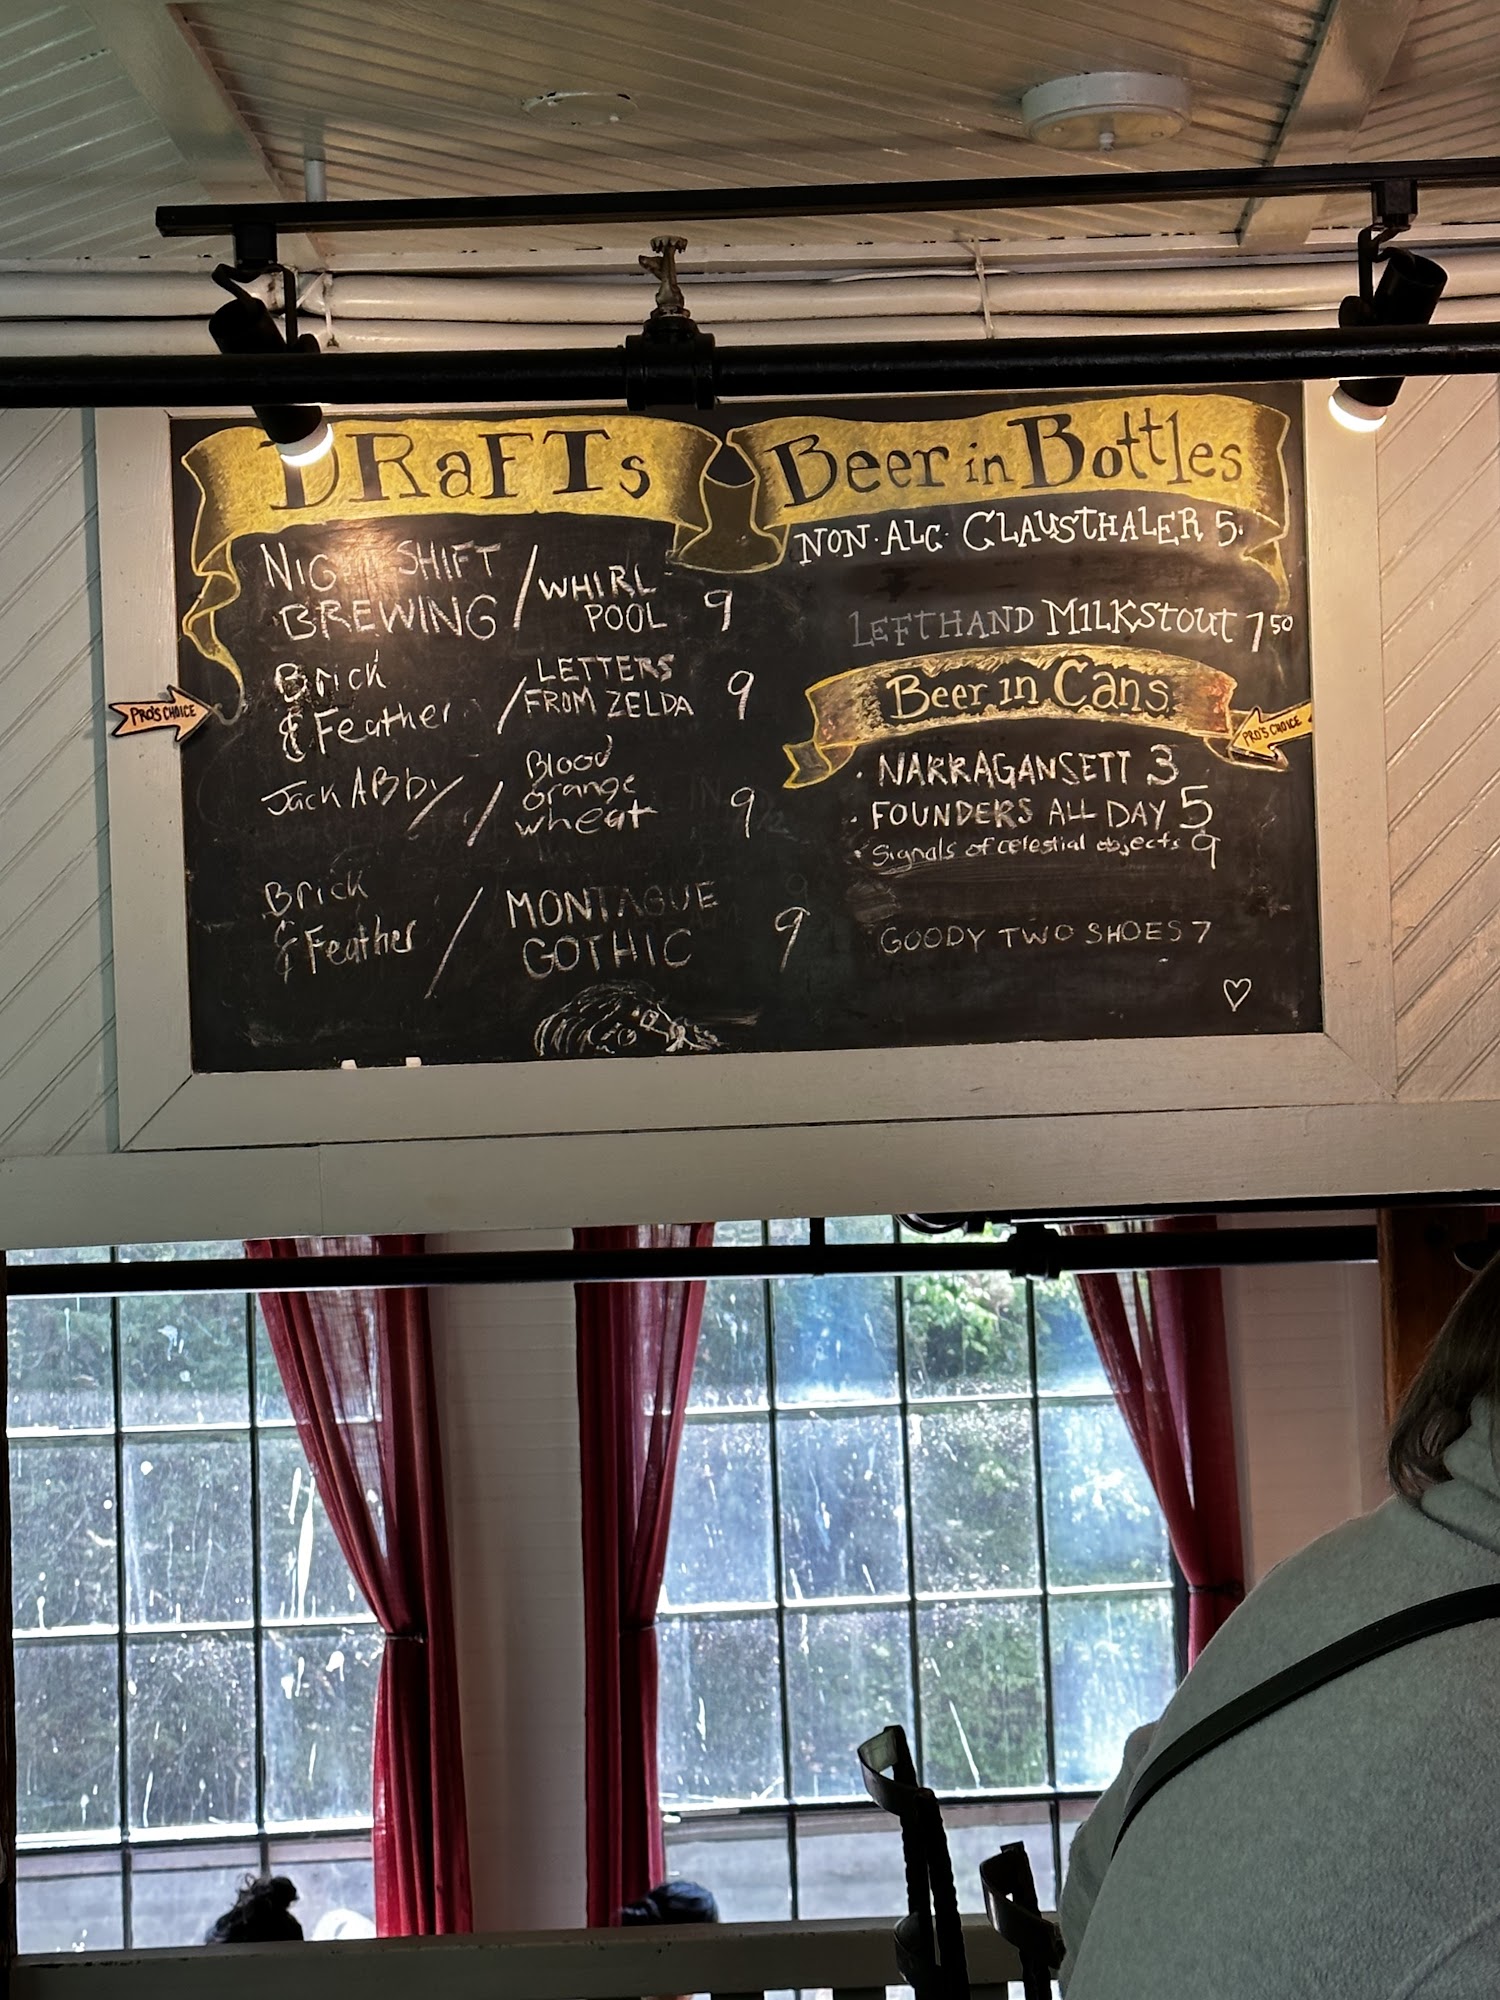 DRaFTs
NIGHT SHIFT
BREWING / WHIRL
POOL 9
Brick
& Feather / LETTERS
FROM ZELDA 9
PRO'S CHOICE
Jack ABBy / Blood
orange
wheat 9
Brick
& Feather / MONTAGUE
GOTHIC 9
Beer in Bottles
NON·ALC CLAUSTHALER 5.
LEFTHAND MILKSTOUT 7 50
Beer in Cans
PRO'S CHOICE
· NARRAGANSETT 3
· FOUNDERS ALL DAY 5
· Signals of celestial objects 9
GOODY TWO SHOES 7